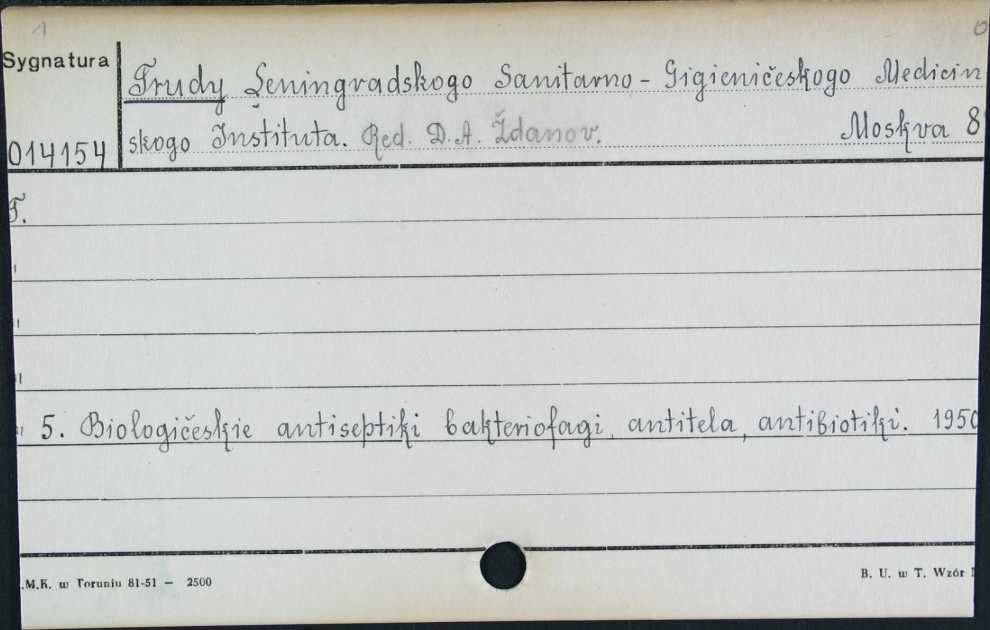 1 0
Sygnatura
Trudy Leningradskogo Sanitarno-Gigieničeskogo Medicin
014154 skogo Instituta. Red. D.A. Ždanov. Moskva 8
T.
"
"
"
" 5. Biologičeskie antiseptiki bakteriofagi, antitela, antibiotiki. 1950
.M.K. w Toruniu 81-51 — 2500
B. U. w T. Wzór